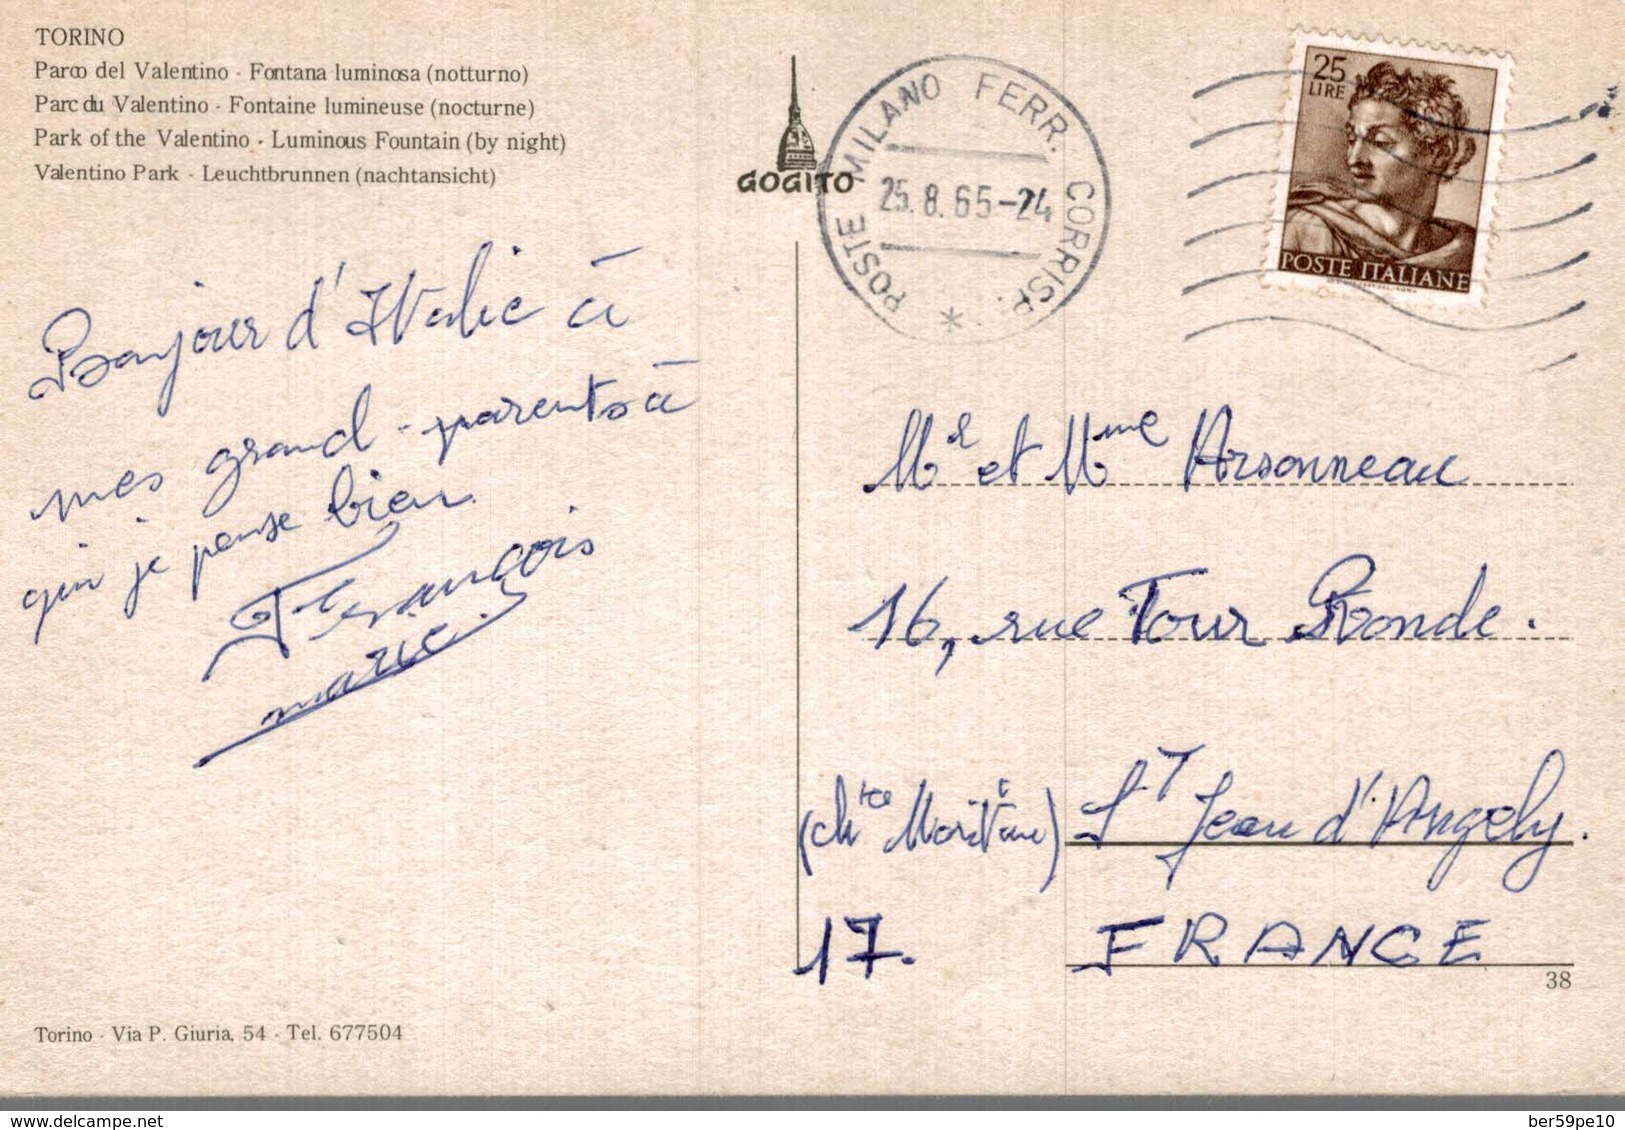 TORINO
Parco del Valentino - Fontana luminosa (notturno)
Parc du Valentino - Fontaine lumineuse (nocturne)
Park of the Valentino - Luminous Fountain (by night)
Valentino Park - Leuchtbrunnen (nachtansicht)
GOGITO
POSTE MILANO FERR. CORRISP. *
25.8.65-24
25
LIRE
POSTE ITALIANE
Bonjour d'Italie à
mes grand-parents à
qui je pense bien
François
marie.
Mr et Mme Arsonneau
16, rue Tour Ronde.
(chte Maritime) St Jean d'Angely.
17. FRANCE
38
Torino - Via P. Giuria, 54 - Tel. 677504
delcampe.net
ber59pe10